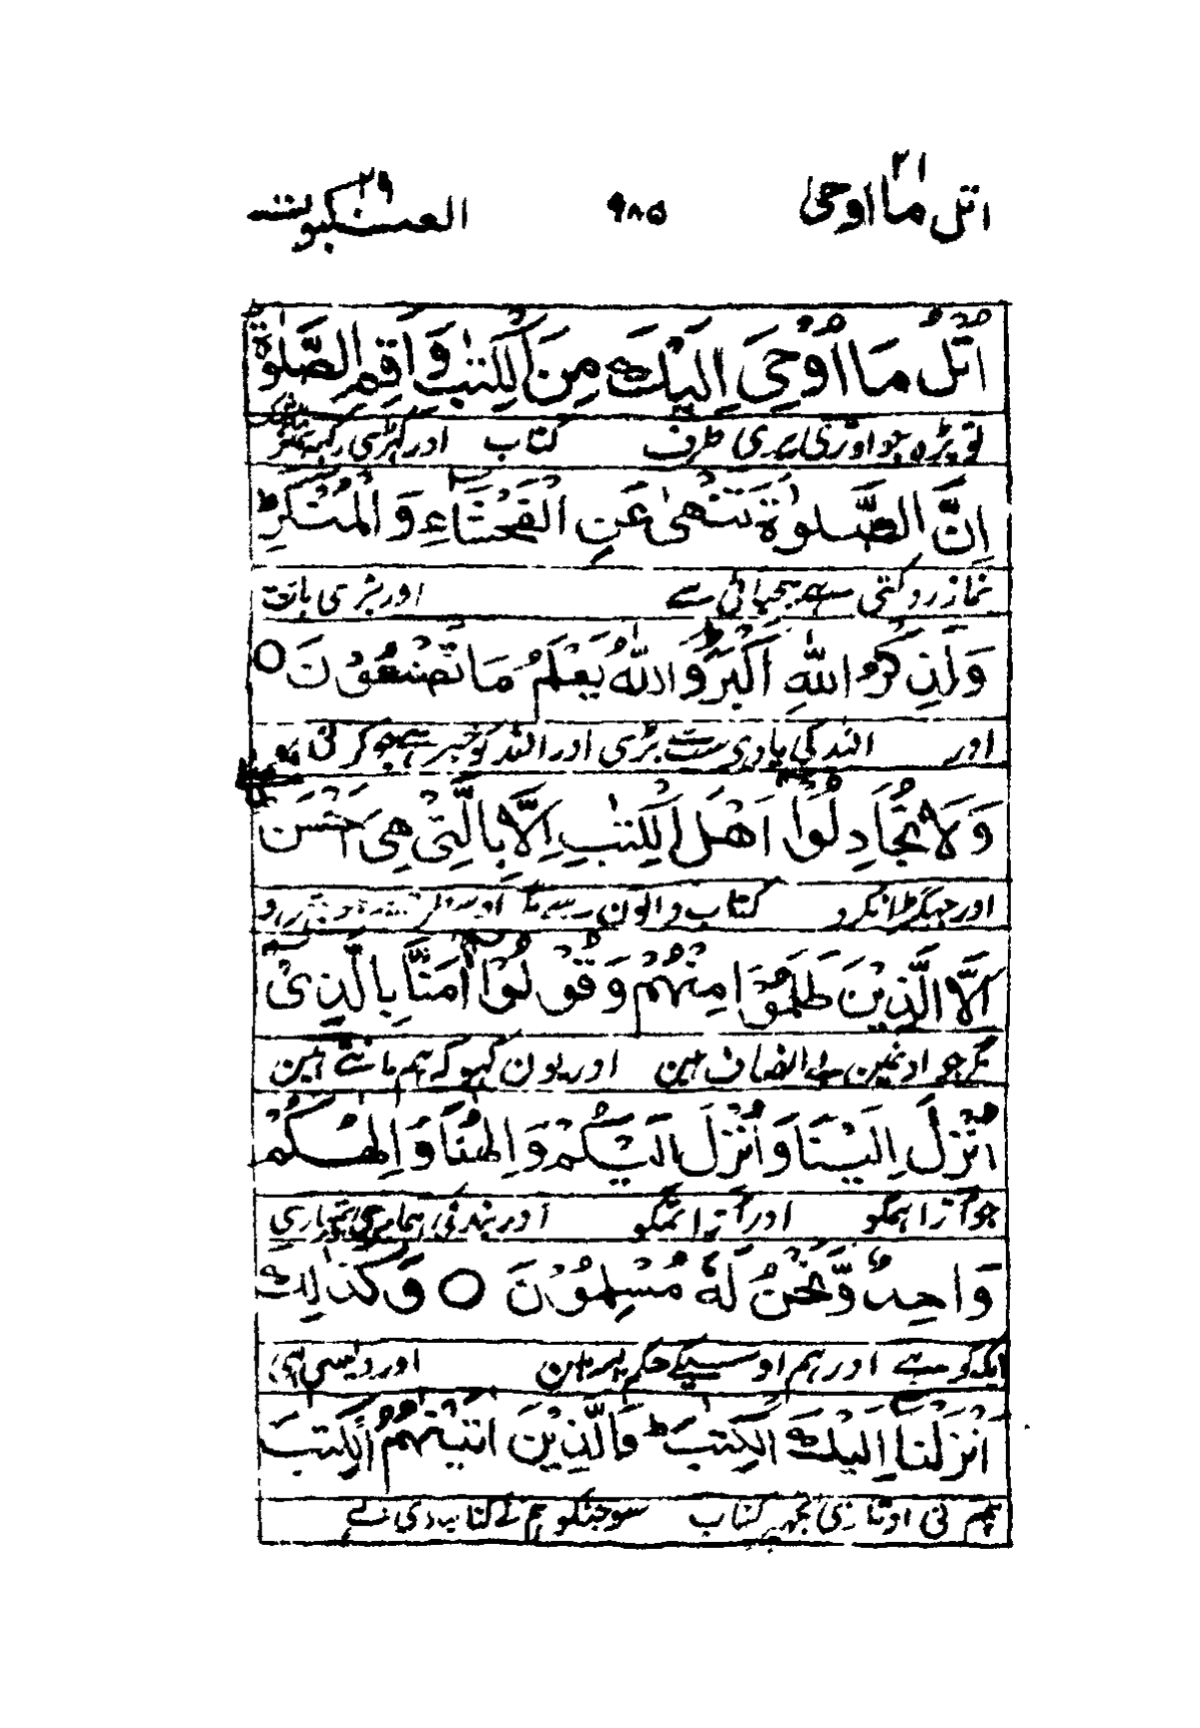 اتل ما اوحی ۲۱ ۹۸۵ العنکبوت ۲۹
اُتْلُ مَا اُوْحِیَ اِلَیْکَ مِنَ الْکِتٰبِ وَاَقِمِ الصَّلٰوةَ
تو پڑہ جو اوتری تیری طرف کتاب اور کہڑی رکہہ نماز
اِنَّ الصَّلٰوةَ تَنْهٰی عَنِ الْفَحْشَآءِ وَالْمُنْکَرِ ط
نماز روکتی ہے بیحیائی سے اور بری بات سے
وَلَذِکْرُ اللّٰهِ اَکْبَرُ ط وَاللّٰهُ یَعْلَمُ مَا تَصْنَعُوْنَ ○
اور اللہ کی یاد ہی سب سے بڑی اور اللہ کو خبر ہے جو کرتی ہو
وَلَا تُجَادِلُوْا اَهْلَ الْکِتٰبِ اِلَّا بِالَّتِیْ هِیَ اَحْسَنُ
اور جہگڑا نکرو کتاب والون سے مگر
اِلَّا الَّذِیْنَ ظَلَمُوْا مِنْهُمْ وَقُوْلُوْا اٰمَنَّا بِالَّذِیْ
مگر جو اونمین بی انصاف ہین اور یون کہو کہ ہم مانتے ہین
اُنْزِلَ اِلَیْنَا وَاُنْزِلَ اِلَیْکُمْ وَاِلٰهُنَا وَاِلٰهُکُمْ
جو اترا ہمکو اور اترا تمکو اور بندگی ہماری تمہاری
وَاحِدٌ وَّنَحْنُ لَهٗ مُسْلِمُوْنَ ○ وَکَذٰلِکَ
ایک کو ہے اور ہم اوسیکے حکم پر ہین اور ویسی ہی
اَنْزَلْنَا اِلَیْکَ الْکِتٰبَ ط فَالَّذِیْنَ اٰتَیْنٰهُمُ الْکِتٰبَ
ہم نی اوتاری تجہپر کتاب سو جنکو ہم نے کتاب دی ہے